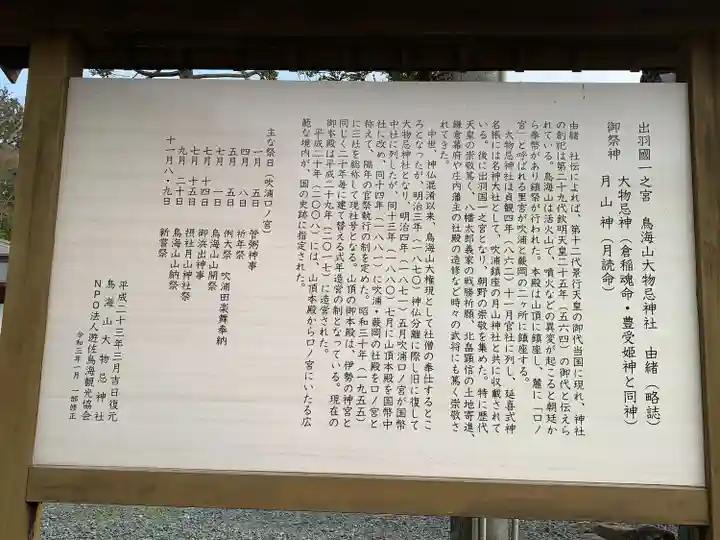 出羽國一之宮　鳥海山大物忌神社　由緒（略誌）
御祭神　大物忌神（倉稲魂命・豊受姫神と同神）
月山神（月読命）
由緒　社伝によれば、第十二代景行天皇の御代当国に現れ、神社
の創祀は第二十九代欽明天皇二十五年（五六四）の御代と伝えら
れている。鳥海山は活火山で、噴火などの異変が起こると朝廷か
ら奉幣があり鎮祭が行われた。本殿は山頂に鎮座し、麓に「口ノ
宮」と呼ばれる里宮が吹浦と蕨岡の二ヶ所に鎮座する。
大物忌神社は貞観四年（八六二）十一月官社に列し、延喜式神
名帳には名神大社として、吹浦鎮座の月山神社と共に収載されて
いる。後に出羽国一之宮となり、朝野の崇敬を集めた。特に歴代
天皇の崇敬篤く、八幡太郎義家の戦勝祈願、北畠顕信の土地寄進、
鎌倉幕府や庄内藩主の社殿の造修など時々の武将にも篤く崇敬さ
れてきた。
中世、神仏混淆以来、鳥海山大権現として社僧の奉仕するとこ
ろとなったが、明治三年（一八七〇）神仏分離に際し旧に復して
大物忌神社となり、明治四年（一八七一）五月吹浦口ノ宮が国幣
中社に列したが、同十三年（一八八〇）七月に山頂本殿を国幣中
社に改め、同十四年（一八八一）に吹浦・蕨岡の社殿を口ノ宮と
称えて、隔年の官祭執行の制を定めた。昭和三十年（一九五五）
に三社を総称して現社号となる。山頂の御本殿は、伊勢の神宮と
同じく二十年毎に建て替える式年造営の制となっている。現在の
御本殿は平成二十九年（二〇一七）に造営された。
平成二十年（二〇〇八）には、山頂本殿から口ノ宮にいたる広
範な境内が、国の史跡に指定された。
主な祭日（吹浦口ノ宮）
一月　五日　管粥神事
四月　八日　祈年祭
五月　五日　例大祭　吹浦田楽舞奉納
七月　一日　鳥海山山開祭
七月　十四日　御浜出神事
七月　十五日　摂社月山神社祭
九月　二十日　鳥海山山納祭
十一月　八、九日　新嘗祭
平成二十三年三月吉日復元
鳥海山大物忌神社
ＮＰＯ法人遊佐鳥海観光協会
令和三年一月　一部修正